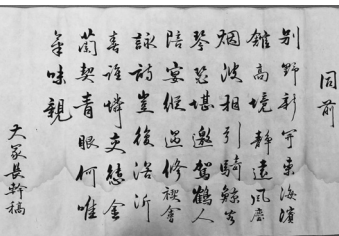 同前
別野新開東海濱
館高境靜遠風塵
烟波相引騎鯨客
琴瑟堪邀駕鶴人
陪宴縱遇修禊會
詠詩豈後浴沂
春誰憐交態金
蘭契青眼何唯
氣味親
大冢長幹稿